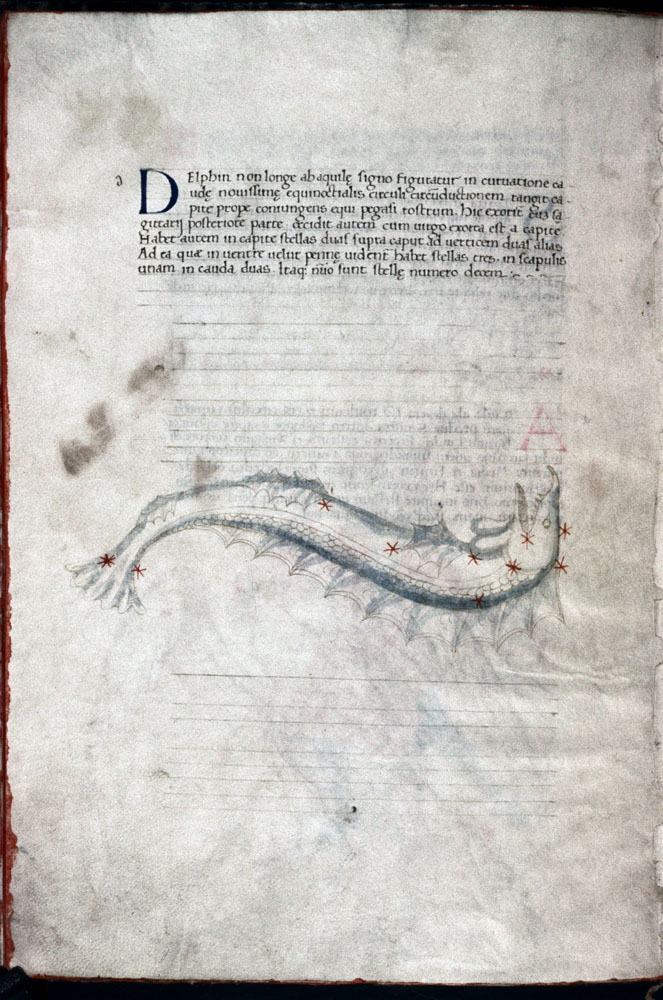 d
DElphin non longe ab aquilę signo figuratur in curuatione ca
udę nouissimę equinoctialis circuli circūductionem tangit ca
pite prope coniungens equi pegasi rostrum. Hic exorit̄ cū sa
gittarij posteriore parte occidit autem cum uirgo exorta est a capite
Habet autem in capite stellas duas supra caput ad uerticem duas alias
Ad ea quæ in uentre uelut pennę uident̄ habet stellas tres. in scapulis
unam in cauda duas. Itaq; oīno sunt stellę numero decem